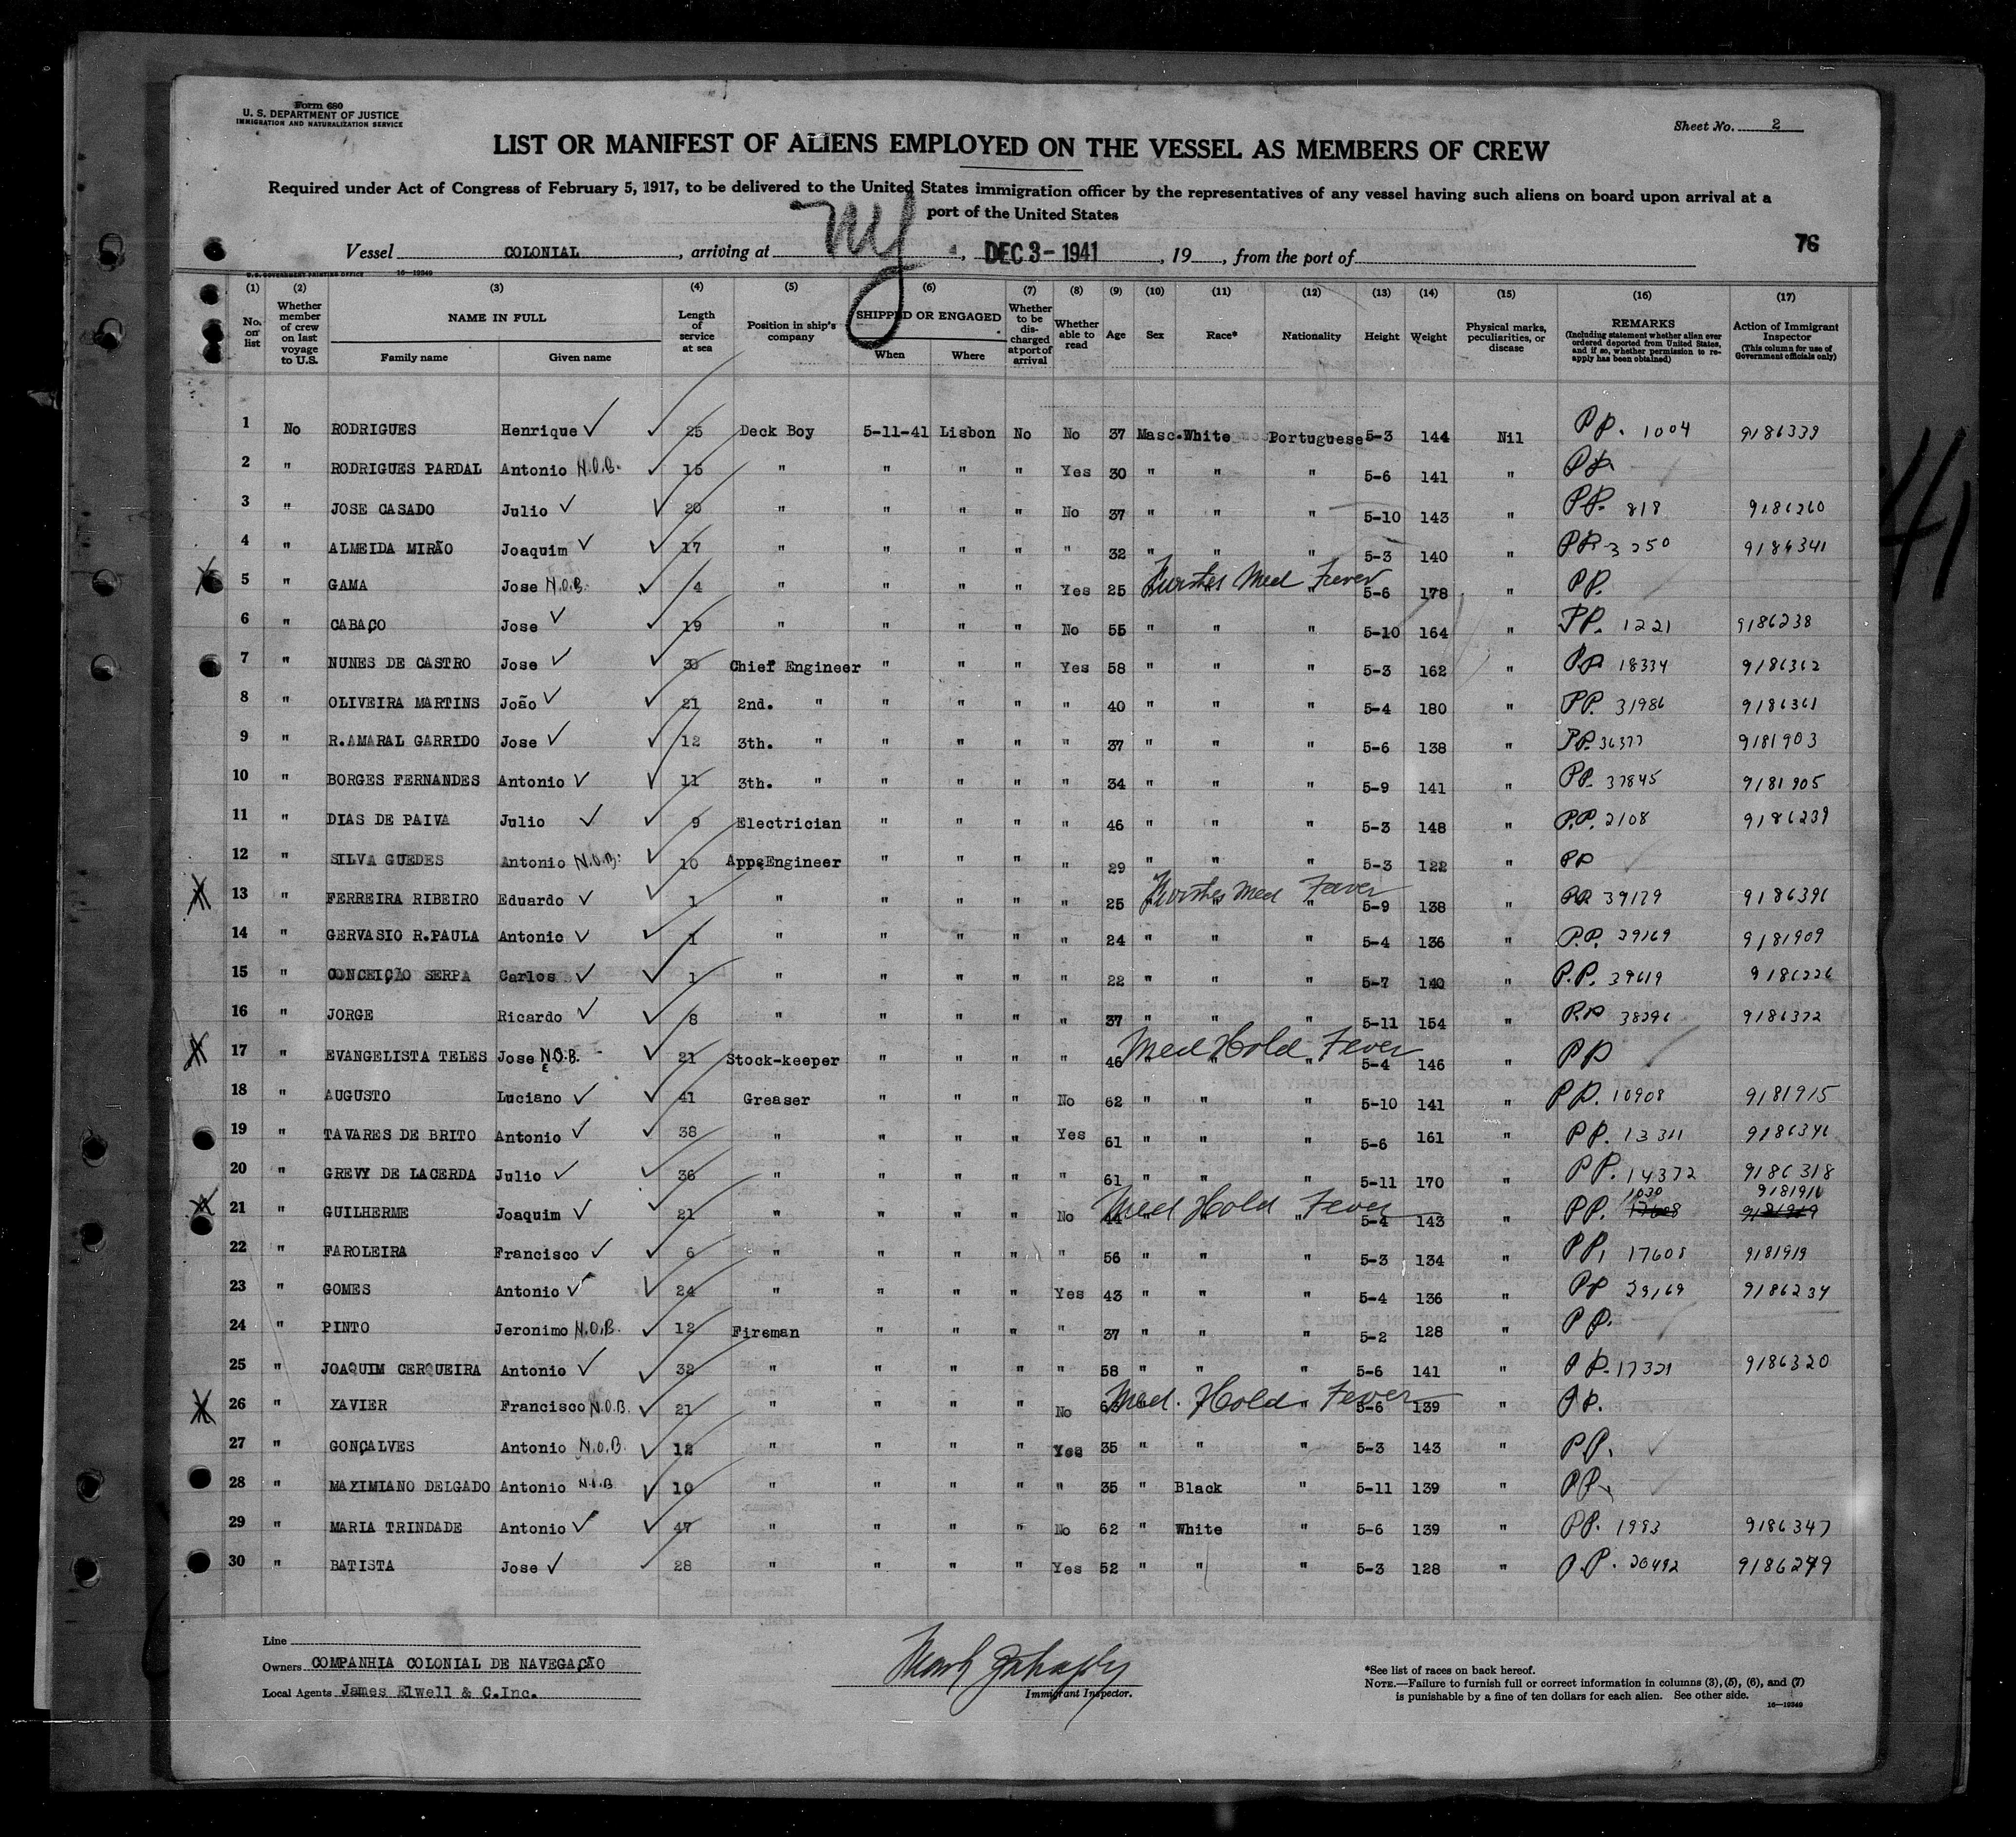 Form 680
U. S. DEPARTMENT OF JUSTICE
IMMIGRATION AND NATURALIZATION SERVICE
Sheet No. 2
LIST OR MANIFEST OF ALIENS EMPLOYED ON THE VESSEL AS MEMBERS OF CREW
Required under Act of Congress of February 5, 1917, to be delivered to the United States immigration officer by the representatives of any vessel having such aliens on board upon arrival at a
port of the United States
76
Vessel COLONIAL, arriving at NY, DEC 3 - 1941, 19 , from the port of
U. S. GOVERNMENT PRINTING OFFICE 16-19349
(1) (2) (3) (4) (5) (6) (7) (8) (9) (10) (11) (12) (13) (14) (15) (16) (17)
No. on list
Whether member of crew on last voyage to U.S.
NAME IN FULL
Family name Given name
Length of service at sea
Position in ship's company
SHIPPED OR ENGAGED
When Where
Whether to be discharged at port of arrival
Whether able to read
Age Sex Race* Nationality Height Weight
Physical marks, peculiarities, or disease
REMARKS
(Including statement whether alien ever ordered deported from United States, and if so, whether permission to reapply has been obtained)
Action of Immigrant Inspector
(This column for use of Government officials only)
1 No RODRIGUES Henrique ✓ 25 Deck Boy 5-11-41 Lisbon No No 37 Masc. White Portuguese 5-3 144 Nil PP. 1004 9186339
2 " RODRIGUES PARDAL Antonio N.O.B. 15 " " " " Yes 30 " " " 5-6 141 " PP
3 " JOSE CASADO Julio ✓ 20 " " " " No 37 " " " 5-10 143 " PP. 818 9186260
4 " ALMEIDA MIRÃO Joaquim ✓ 17 " " " " " 32 " " " 5-3 140 " PP. 3250 9186341
5 " GAMA Jose N.O.B. 4 " " " " Yes 25 " " " Med Fever 5-6 178 " PP.
6 " CABAÇO Jose ✓ 19 " " " " No 55 " " " 5-10 164 " PP. 1221 9186238
7 " NUNES DE CASTRO Jose ✓ 30 Chief Engineer " " " Yes 58 " " " 5-3 162 " PP 18334 9186362
8 " OLIVEIRA MARTINS João ✓ 21 2nd. " " " " " 40 " " " 5-4 180 " PP. 31986 9186361
9 " R.AMARAL GARRIDO Jose ✓ 12 3th. " " " " " 37 " " " 5-6 138 " PP. 36377 9181903
10 " BORGES FERNANDES Antonio ✓ 11 3th. " " " " " 34 " " " 5-9 141 " PP. 37845 9181905
11 " DIAS DE PAIVA Julio ✓ 9 Electrician " " " " 46 " " " 5-3 148 " P.P. 2108 9186239
12 " SILVA GUEDES Antonio N.O.B. 10 App.Engineer " " " " 29 " " " 5-3 122 " PP
13 " FERREIRA RIBEIRO Eduardo ✓ 1 " " " " " 25 " " " Med Fever 5-9 138 " PP. 39179 9186396
14 " GERVASIO R.PAULA Antonio ✓ 1 " " " " " 24 " " " 5-4 136 " P.P. 29169 9181909
15 " CONCEIÇÃO SERPA Carlos ✓ 1 " " " " " 22 " " " 5-7 140 " P.P. 39619 9186226
16 " JORGE Ricardo ✓ 8 " " " " " 37 " " " 5-11 154 " P.P 38296 9186372
17 " EVANGELISTA TELES Jose N.O.B. 21 Stock-keeper " " " " 46 " Med Hold Fever " 5-4 146 " PP
18 " AUGUSTO Luciano ✓ 41 Greaser " " " No 62 " " " 5-10 141 " PP. 10908 9181915
19 " TAVARES DE BRITO Antonio ✓ 38 " " " " Yes 61 " " " 5-6 161 " PP. 13311 9186346
20 " GREVY DE LACERDA Julio ✓ 36 " " " " " 61 " " " 5-11 170 " PP. 14372 9186318
21 " GUILHERME Joaquim ✓ 21 " " " " No 44 Med Hold Fever " 5-4 143 " PP. 1030 17608 9181916 9181919
22 " FAROLEIRA Francisco ✓ 6 " " " " " 56 " " " 5-3 134 " PP. 17608 9181919
23 " GOMES Antonio ✓ 24 " " " " Yes 43 " " " 5-4 136 " PP 29169 9186234
24 " PINTO Jeronimo N.O.B. 12 Fireman " " " " 37 " " " 5-2 128 " PP.
25 " JOAQUIM CERQUEIRA Antonio ✓ 32 " " " " " 58 " " " 5-6 141 " PP. 17321 9186320
26 " XAVIER Francisco N.O.B. 21 " " " " No Med. Hold Fever 5-6 139 " PP.
27 " GONÇALVES Antonio N.O.B. 12 " " " " Yes 35 " " " 5-3 143 " PP.
28 " MAXIMIANO DELGADO Antonio N.O.B 10 " " " " " 35 " Black " 5-11 139 " PP.
29 " MARIA TRINDADE Antonio ✓ 47 " " " " No 62 " White " 5-6 139 " PP. 1993 9186347
30 " BATISTA Jose ✓ 28 " " " " Yes 52 " " " 5-3 128 " P.P. 20492 9186249
41
Line
Owners COMPANHIA COLONIAL DE NAVEGAÇÃO
Local Agents James Elwell & C.Inc.
Immigrant Inspector.
*See list of races on back hereof.
NOTE.—Failure to furnish full or correct information in columns (3), (5), (6), and (7)
is punishable by a fine of ten dollars for each alien. See other side.
16—19349